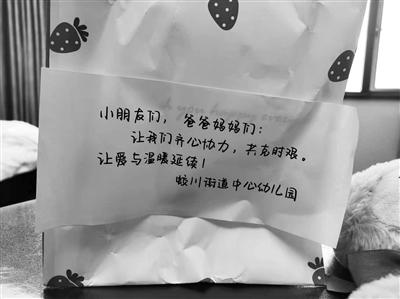 小朋友们，爸爸妈妈们：
让我们齐心协力，共克时艰。
让爱与温暖延续！
蛟川街道中心幼儿园